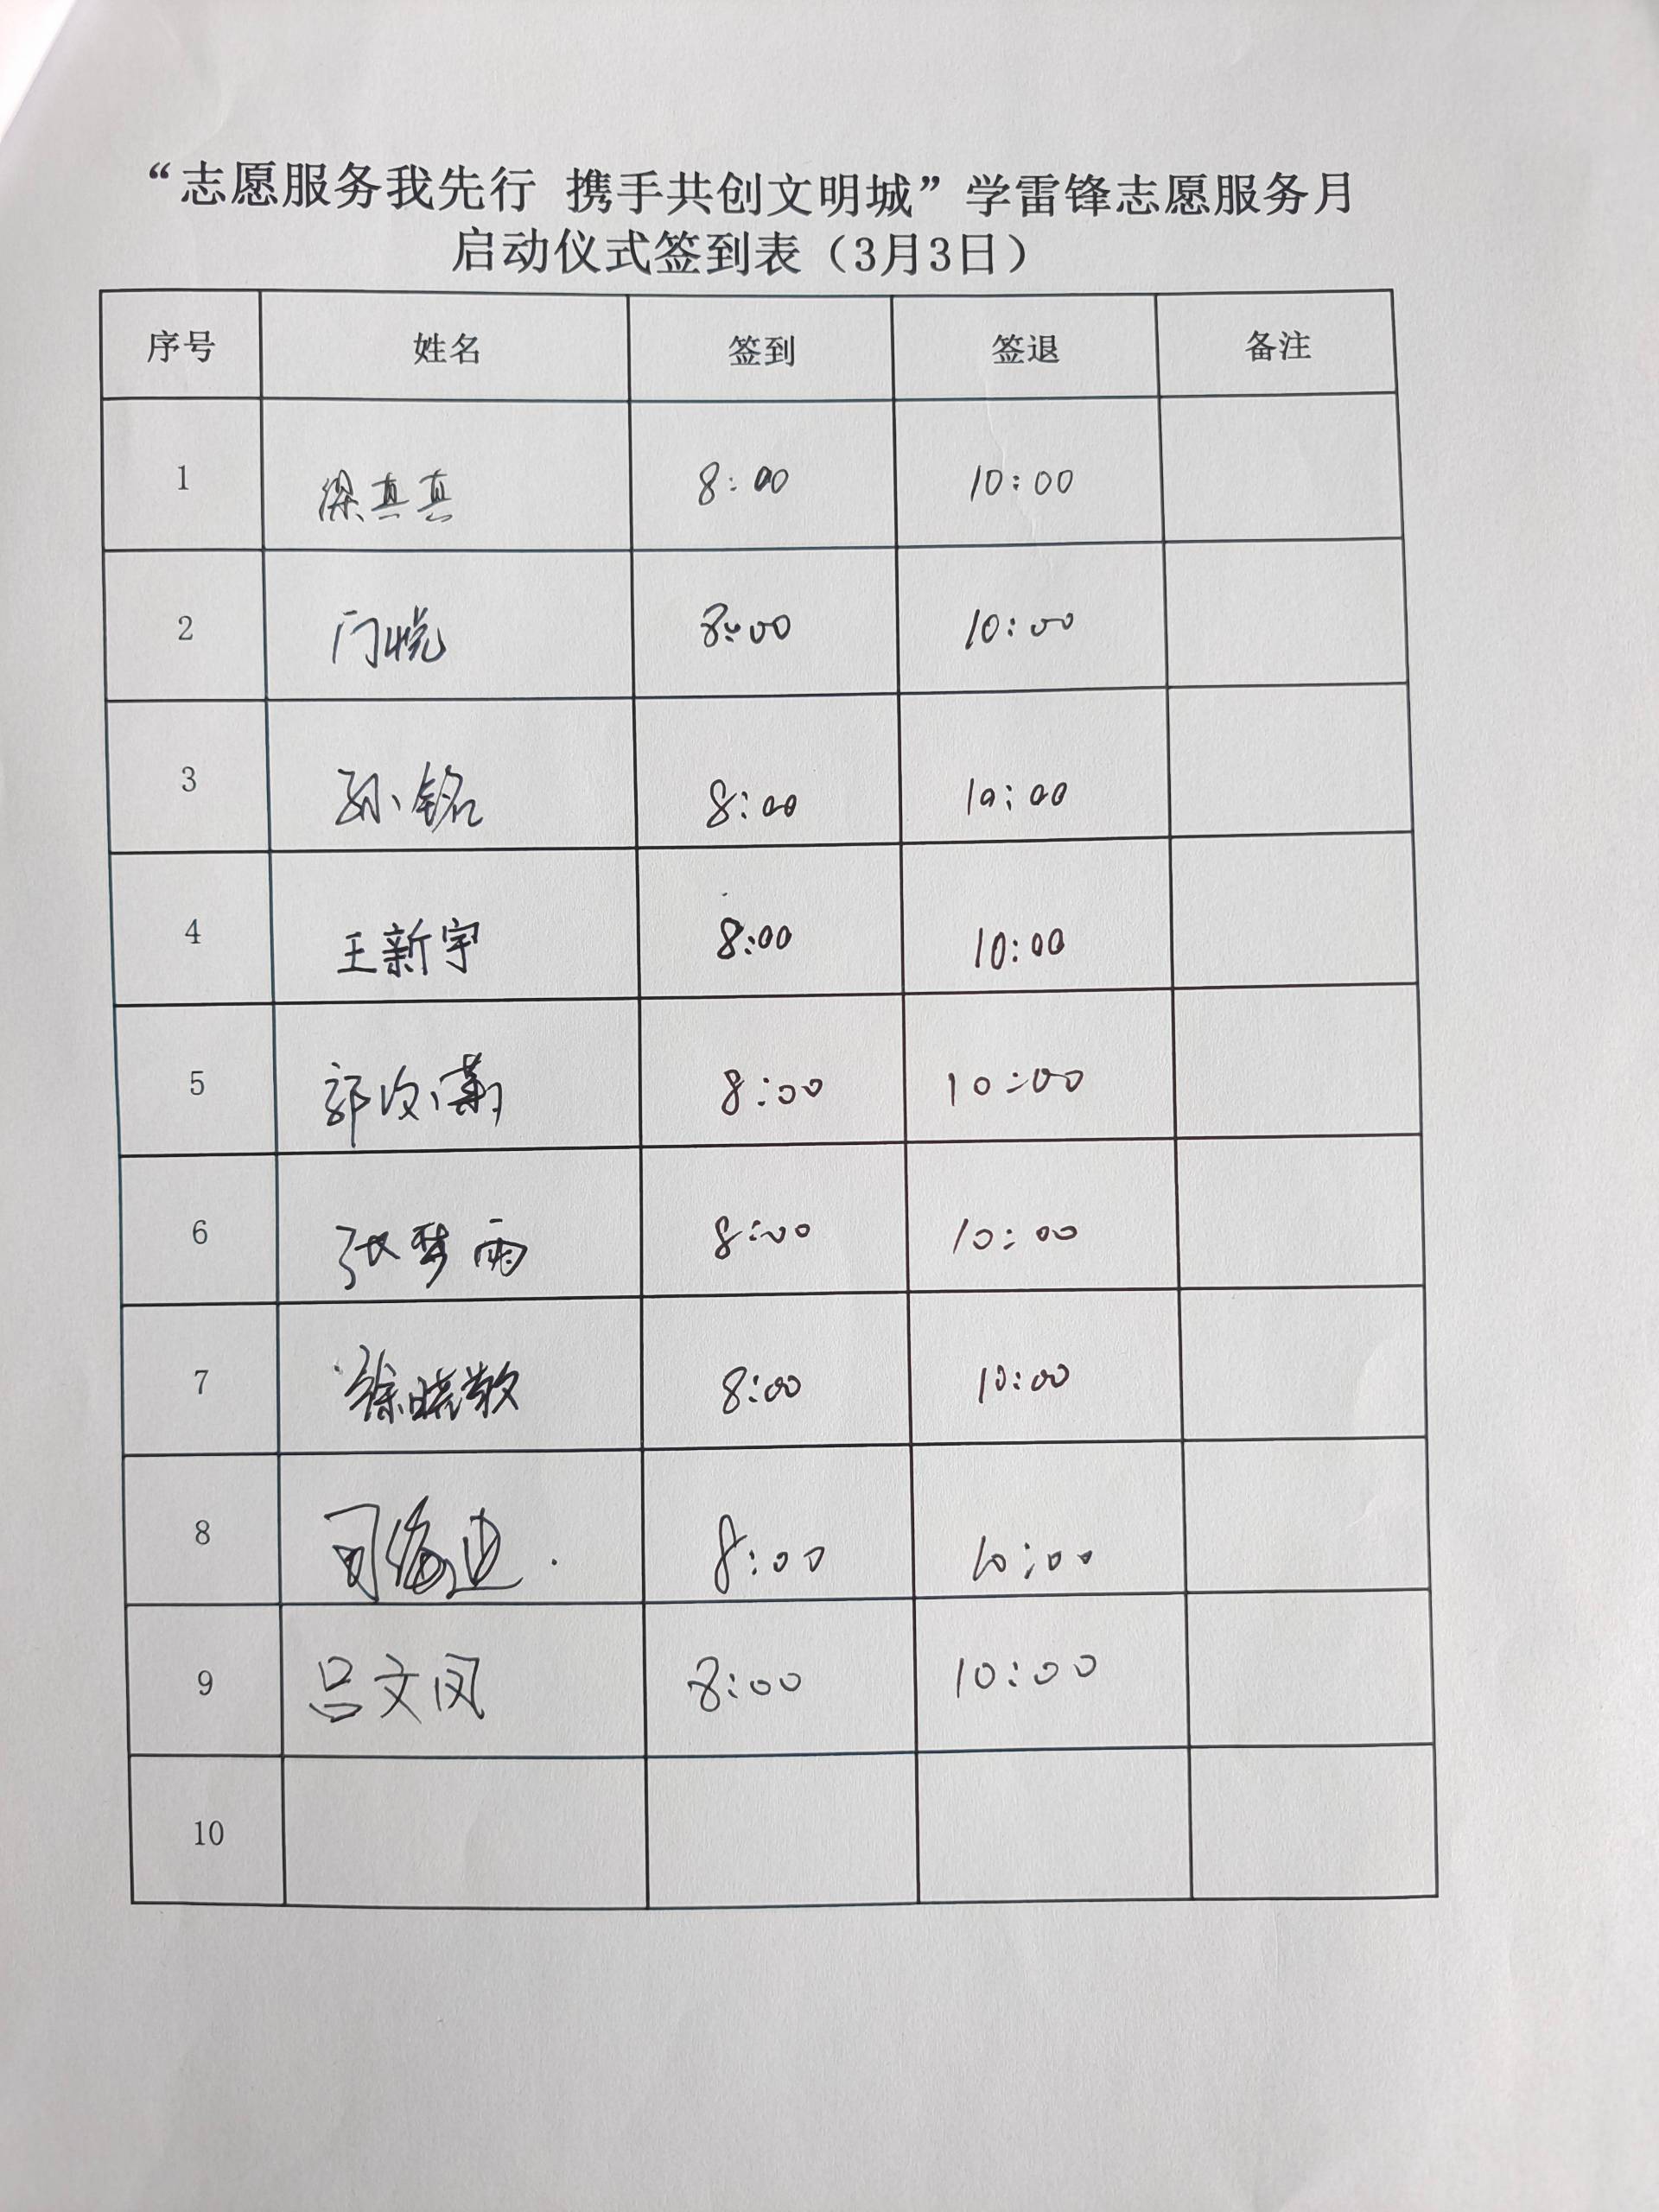 “志愿服务我先行 携手共创文明城”学雷锋志愿服务月
启动仪式签到表（3月3日）
序号 姓名 签到 签退 备注
1 梁真真 8:00 10:00
2 门悦 8:00 10:00
3 孙铭 8:00 10:00
4 王新宇 8:00 10:00
5 郭汝潇 8:00 10:00
6 张梦雨 8:00 10:00
7 徐晓敏 8:00 10:00
8 司海迪 8:00 10:00
9 吕文凤 8:00 10:00
10